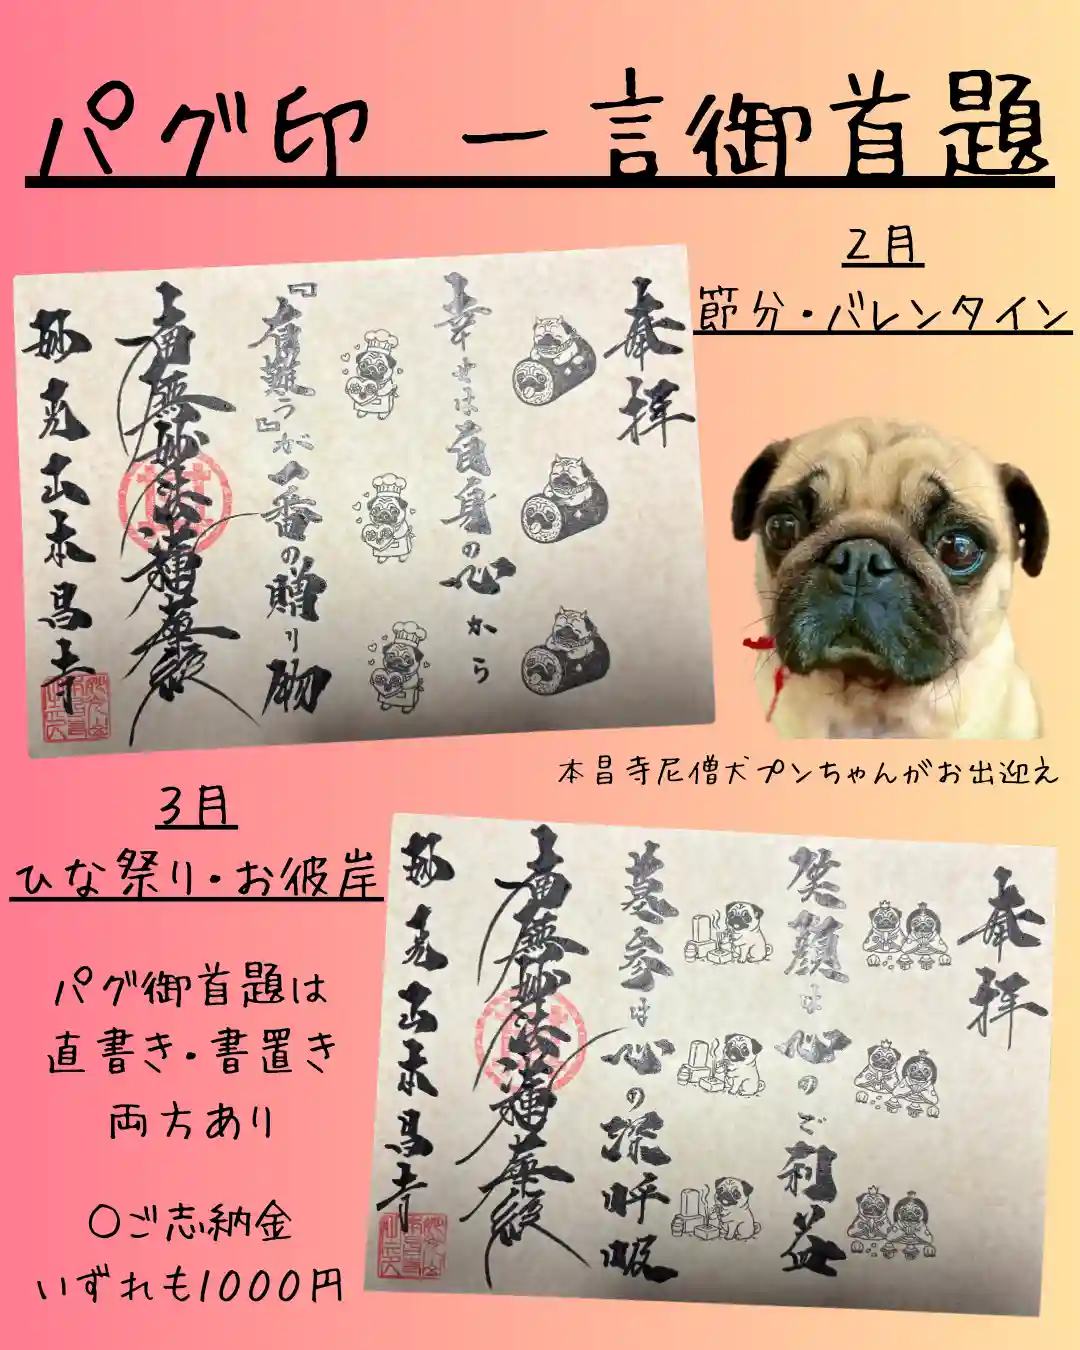 パグ印 一言御首題
2月
節分・バレンタイン
奉拝
幸せは自身の心から
『有難う』が一番の贈り物
南無妙法蓮華経
妙光山本昌寺
本昌寺尼僧犬プンちゃんがお出迎え
3月
ひな祭り・お彼岸
奉拝
笑顔は心のご利益
墓参は心の深呼吸
南無妙法蓮華経
妙光山本昌寺
パグ御首題は
直書き・書置き
両方あり
○ご志納金
いずれも1000円